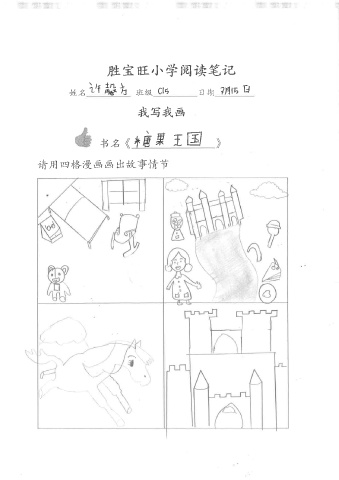 胜宝旺小学阅读笔记
姓名 许馨方 班级 C15 日期 7月15日
我写我画
书名《糖果王国》
请用四格漫画画出故事情节